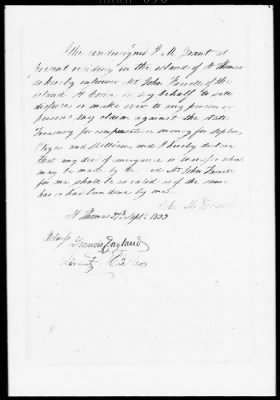 The undersigned J. M. Grant at
present residing in the island of St Thomas
do hereby authorize Mr John Farrell of the
island St Croix in my behalf to sell
dispose or make over to any person or
persons my claim against the state
Treasury for compensation money for
and William, and I hereby declare
that any
may be made by the Mr John Farrell
for me shall be as valid as if the same
has been done by me.
St Thomas 27th Sept. 1853
Grant
Witness
Francis England